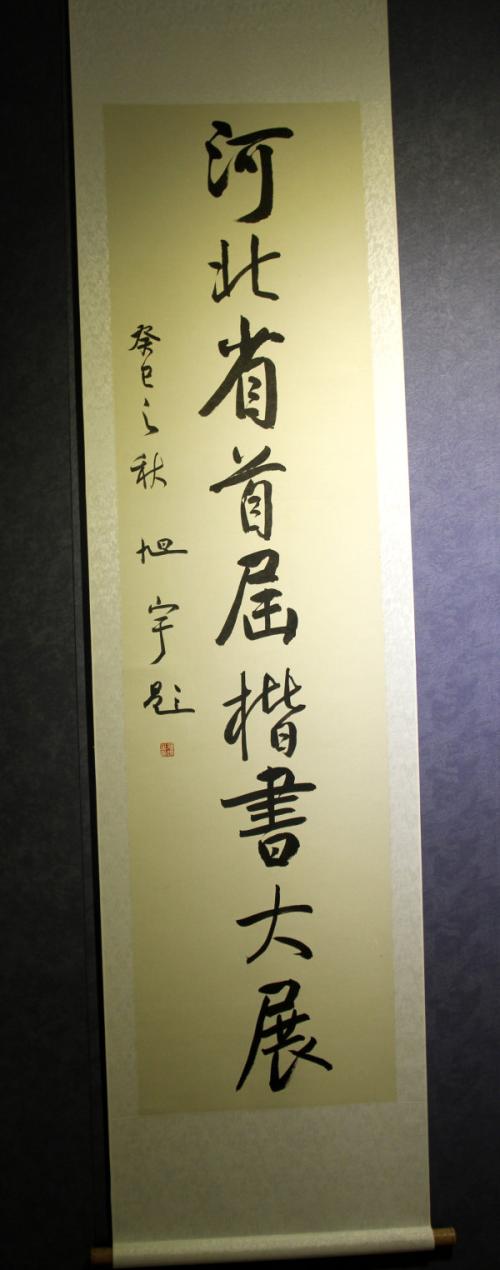 河北省首届楷書大展
癸巳之秋 旭宇題